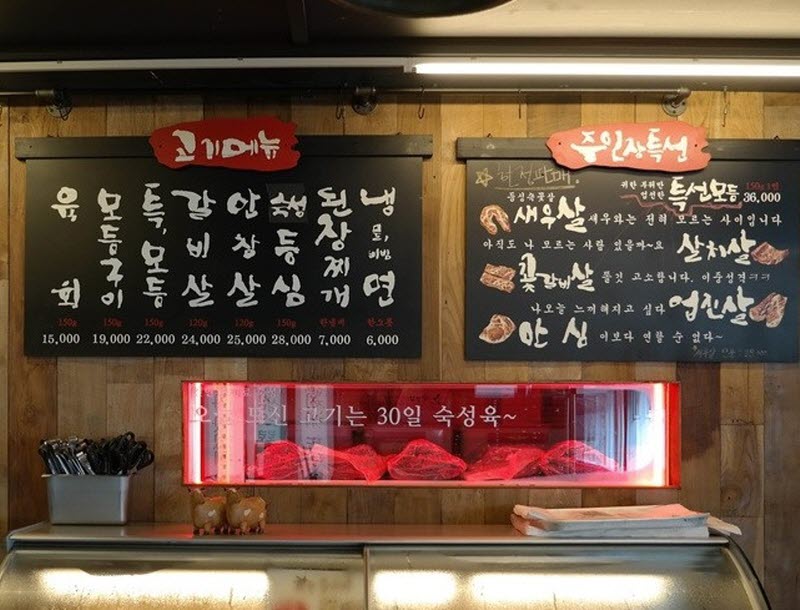 고기메뉴
육회 150g 15,000
모듬구이 150g 19,000
특,모듬 150g 22,000
갈비살 120g 24,000
안창살 120g 25,000
숙성등심 150g 28,000
된장찌개 한냄비 7,000
냉면 물,비빔 한그릇 6,000
주인장특선
한정판매
등심속꽃살
귀한 부위만 엄선한 특선모듬 150g 1인 36,000
새우살 새우와는 전혀 모르는 사이입니다
아직도 나 모르는 사람 있을까~요 살치살
꽃갈비살 물것 고소합니다. 이중성격ㅋㅋ
나오늘 느끼해지고 싶다 업진살
안심 이보다 연할 순 없다~
고기는 30일 숙성육~